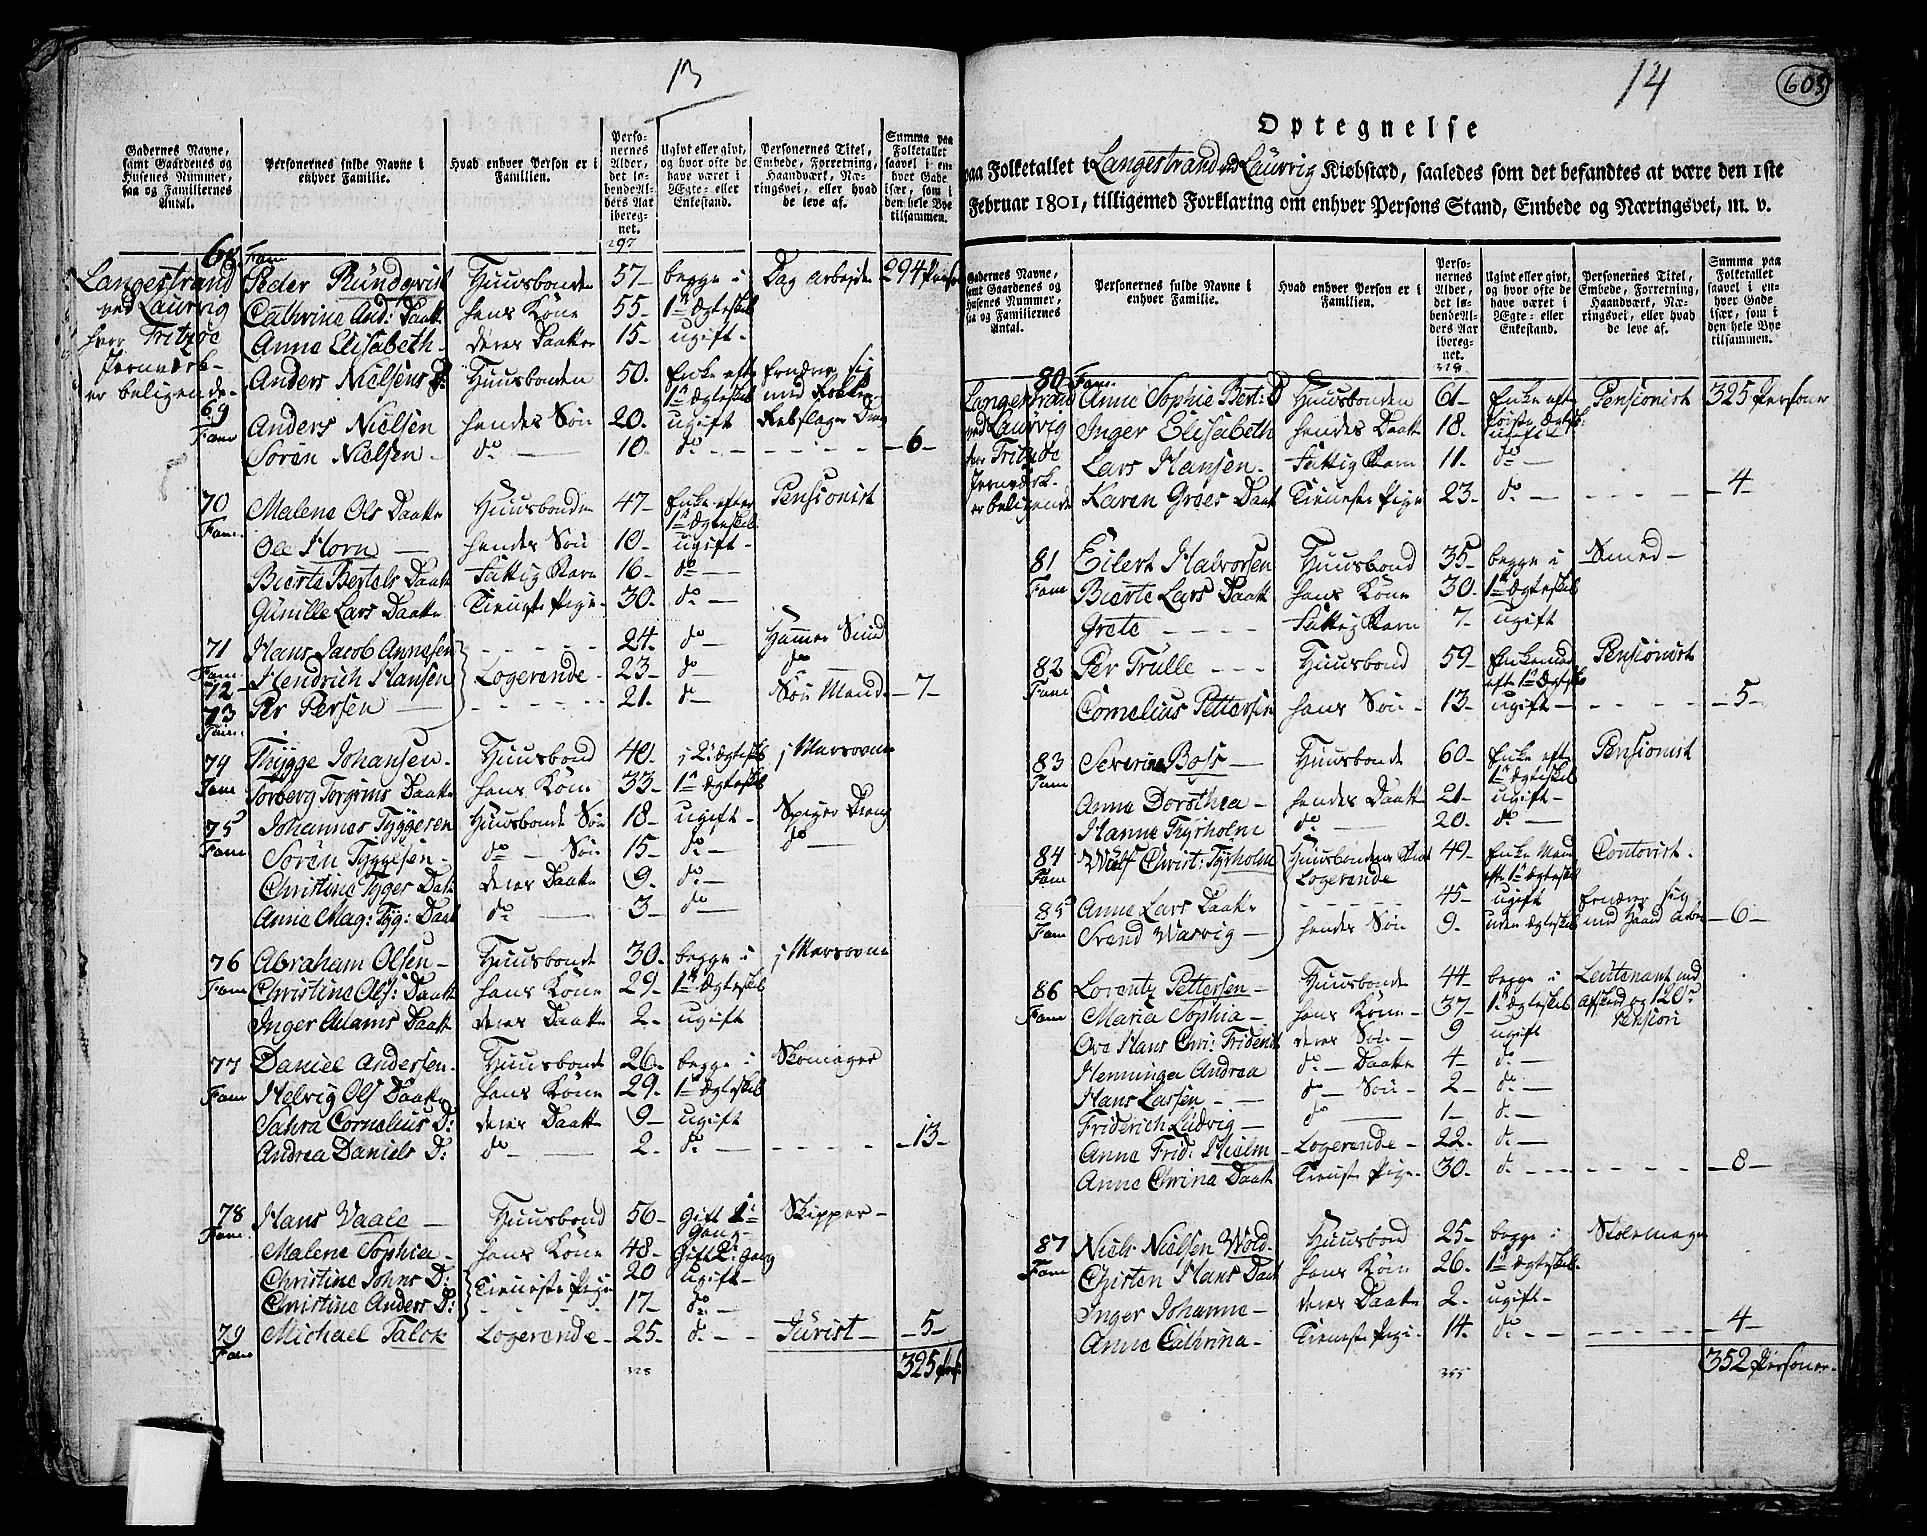 13
Gadernes Navne, samt Gaardenes og Husenes Nummer, saa og Familiernes Antal.
Personernes fulde Navne i enhver Familie.
Hvad enhver Person er i Familien.
Personernes Alder, det løbende Alders Aar iberegnet.
Ugivt eller givt, og hvor ofte de have været i Ægte- eller Enkestand.
Personernes Titel, Embede, Forretning, Haandværk, Næringsvei, eller hvad de leve af.
Summa paa Folketallet saavel i enhver Gade især, som i den hele Bye tilsammen.
297
Langestrand ved Laurvig hvor Fritzøe Jernværk er beligende
68 Fam Peder Rundqvist Huusbonde 57 begge i Dag arbejder 294 Person
Cathrine And: Daatt hans Kone 55 1te Ægteskab
Anne Elisabeth deres Daatter 15 ugift
69 Fam Anders Nielsens D: Huusbonden 50 Enke eft 1te Ægteskab ernærer sig med
Anders Nielsen hendes Søn 20 ugift Rebslager Dreng
Søren Nielsen do 10 do 6
70 Fam. Malene Ols Daatter Huusbonde 47 Enke efter 1te Ægteskab Pensionist
Ole Horn hendes Søn 10 ugift
Bierte Bertels Daatt Fattig Barn 16 do
Gunille Lars Daatter Tieneste Pige 30 do
71 Fam Hans Jacob Annesen 24 do Hammer Smid
72 Hendrich Hansen Logerende 23 do do
73 Fam. Per Persen 21 do Søe Mand 7
74 Fam Thygge Johansen Huusbond 40 i 2t Ægteskab i Marsovne
Torberg Torgrims Daatter hans Kone 33 1te Ægteskab
75 Fam Johannes Tyggesen Huusbonds Søn 18 ugift Spiger Dreng
Søren Tyggesen do Søn 15 do do
Christine Tygges Datt deres Daatter 9 do
Anne Mag: Tyg: Daatt do 3 do
76 Fam Abraham Olsen Huusbonde 30 begge i i Marsovne
Christine Ols: Daatt hans Kone 29 1te Ægteskab
Inger Adams Daatt deres Daatter 2 ugift
77 Fam Daniel Andersen Huusbonde 26 begge i Skomager
Helvig Ols Daatter hans Kone 29 1te Ægteskab
Sahra Cornelius D: deres Daatt 9 ugift
Andrea Daniels D: do 2 do 13
78 Fam. Hans Vaale Huusbond 56 Gift 1te Gang Skipper
Malene Sophia hans Kone 48 Gift 2t Gang
Christine Johns D: Tieneste Pige 20 ugift
Christine Anders D: 17 do
79 Fam Michael Falck Logerende 25 do Jurist 5
328 325 Pers
14
603
Optegnelse
paa Folketallet i Langestrand ved Laurvig Kiøbstæd, saaledes som det befandtes at være den 1ste
Februar 1801, tilligemed Forklaring om enhver Persons Stand, Embede og Næringsvei, m. v.
Gadernes Navne, samt Gaardenes og Husenes Nummer, saa og Familiernes Antal.
Personernes fulde Navne i enhver Familie.
Hvad enhver Person er i Familien.
Personernes Alder, det løbende Alders Aar iberegnet.
Ugivt eller givt, og hvor ofte de have været i Ægte- eller Enkestand.
Personernes Titel, Embede, Forretning, Haandværk, Næringsvei, eller hvad de leve af.
Summa paa Folketallet saavel i enhver Gade især, som i den hele Bye tilsammen.
328
Langestrand ved Laurvig hvor Fritzøe Jernværk er beligende
80 Fam. Anne Sophie Bert: D Huusbonden 61 Enke eft første Ægtesk: Pensionist 325 Personer
Inger Elisabeth hendes Daatt 18 ugift
Lars Hansen Fattig Barn 11 do
Karen Groes Daatt Tieneste Pige 23 do 4
81 Fam Eilert Halvorsen Huusbond 35 begge i Smed
Bierte Lars Daatt hans Kone 30 1te Ægteskab
Grete Fattig Barn 7 ugift
82 Fam Per Trulle Huusbond 59 Enkemand eft 1te Ægteskab Pensionist
Cornelius Pettersen hans Søn 13 ugift 5
83 Fam Severine Bols Huusbonde 60 Enke eft 1te Ægteskab Pensionist
Anna Dorothea hendes Daatt 21 ugift
Hanne Thyrholm do 20 do
84 Fam Wulf Christ: Tyrholm Huusbondens Logerende 49 Enke Man eft 1te Ægteskab Contorist
85 Fam Anne Lars Daatter 45 ugift ernærer sig
Svend Warvig hendes Søn 9 uden Ægteskab med Haand Arbei 6
86 Fam Lorentz Pettersen Huusbonde 44 begge i Leutenant med Afskeed og 120r Pension
Maria Sophia hans Kone 37 1te Ægteskab
Ove Hans Chri: Friderich deres Søn 9 ugift
Henninger Andrea do Daatt 4 do
Hans Lassen do Søn 2 do
Friderich Ludvig do 1 do
Anne Frid: Hielm Logerende 22 do
Anne Chrina Daatt Tieneste Pige 30 do 8
87 Fam Niels Nielsen Wold Huusbond 25 begge i Stolemager
Chisten Hans Daat hans Kone 26 1te Ægteskab
Inger Johanne deres Daatter 2 ugift
Anne Cathrina Tieneste Pige 14 do 4
355 352 Personer